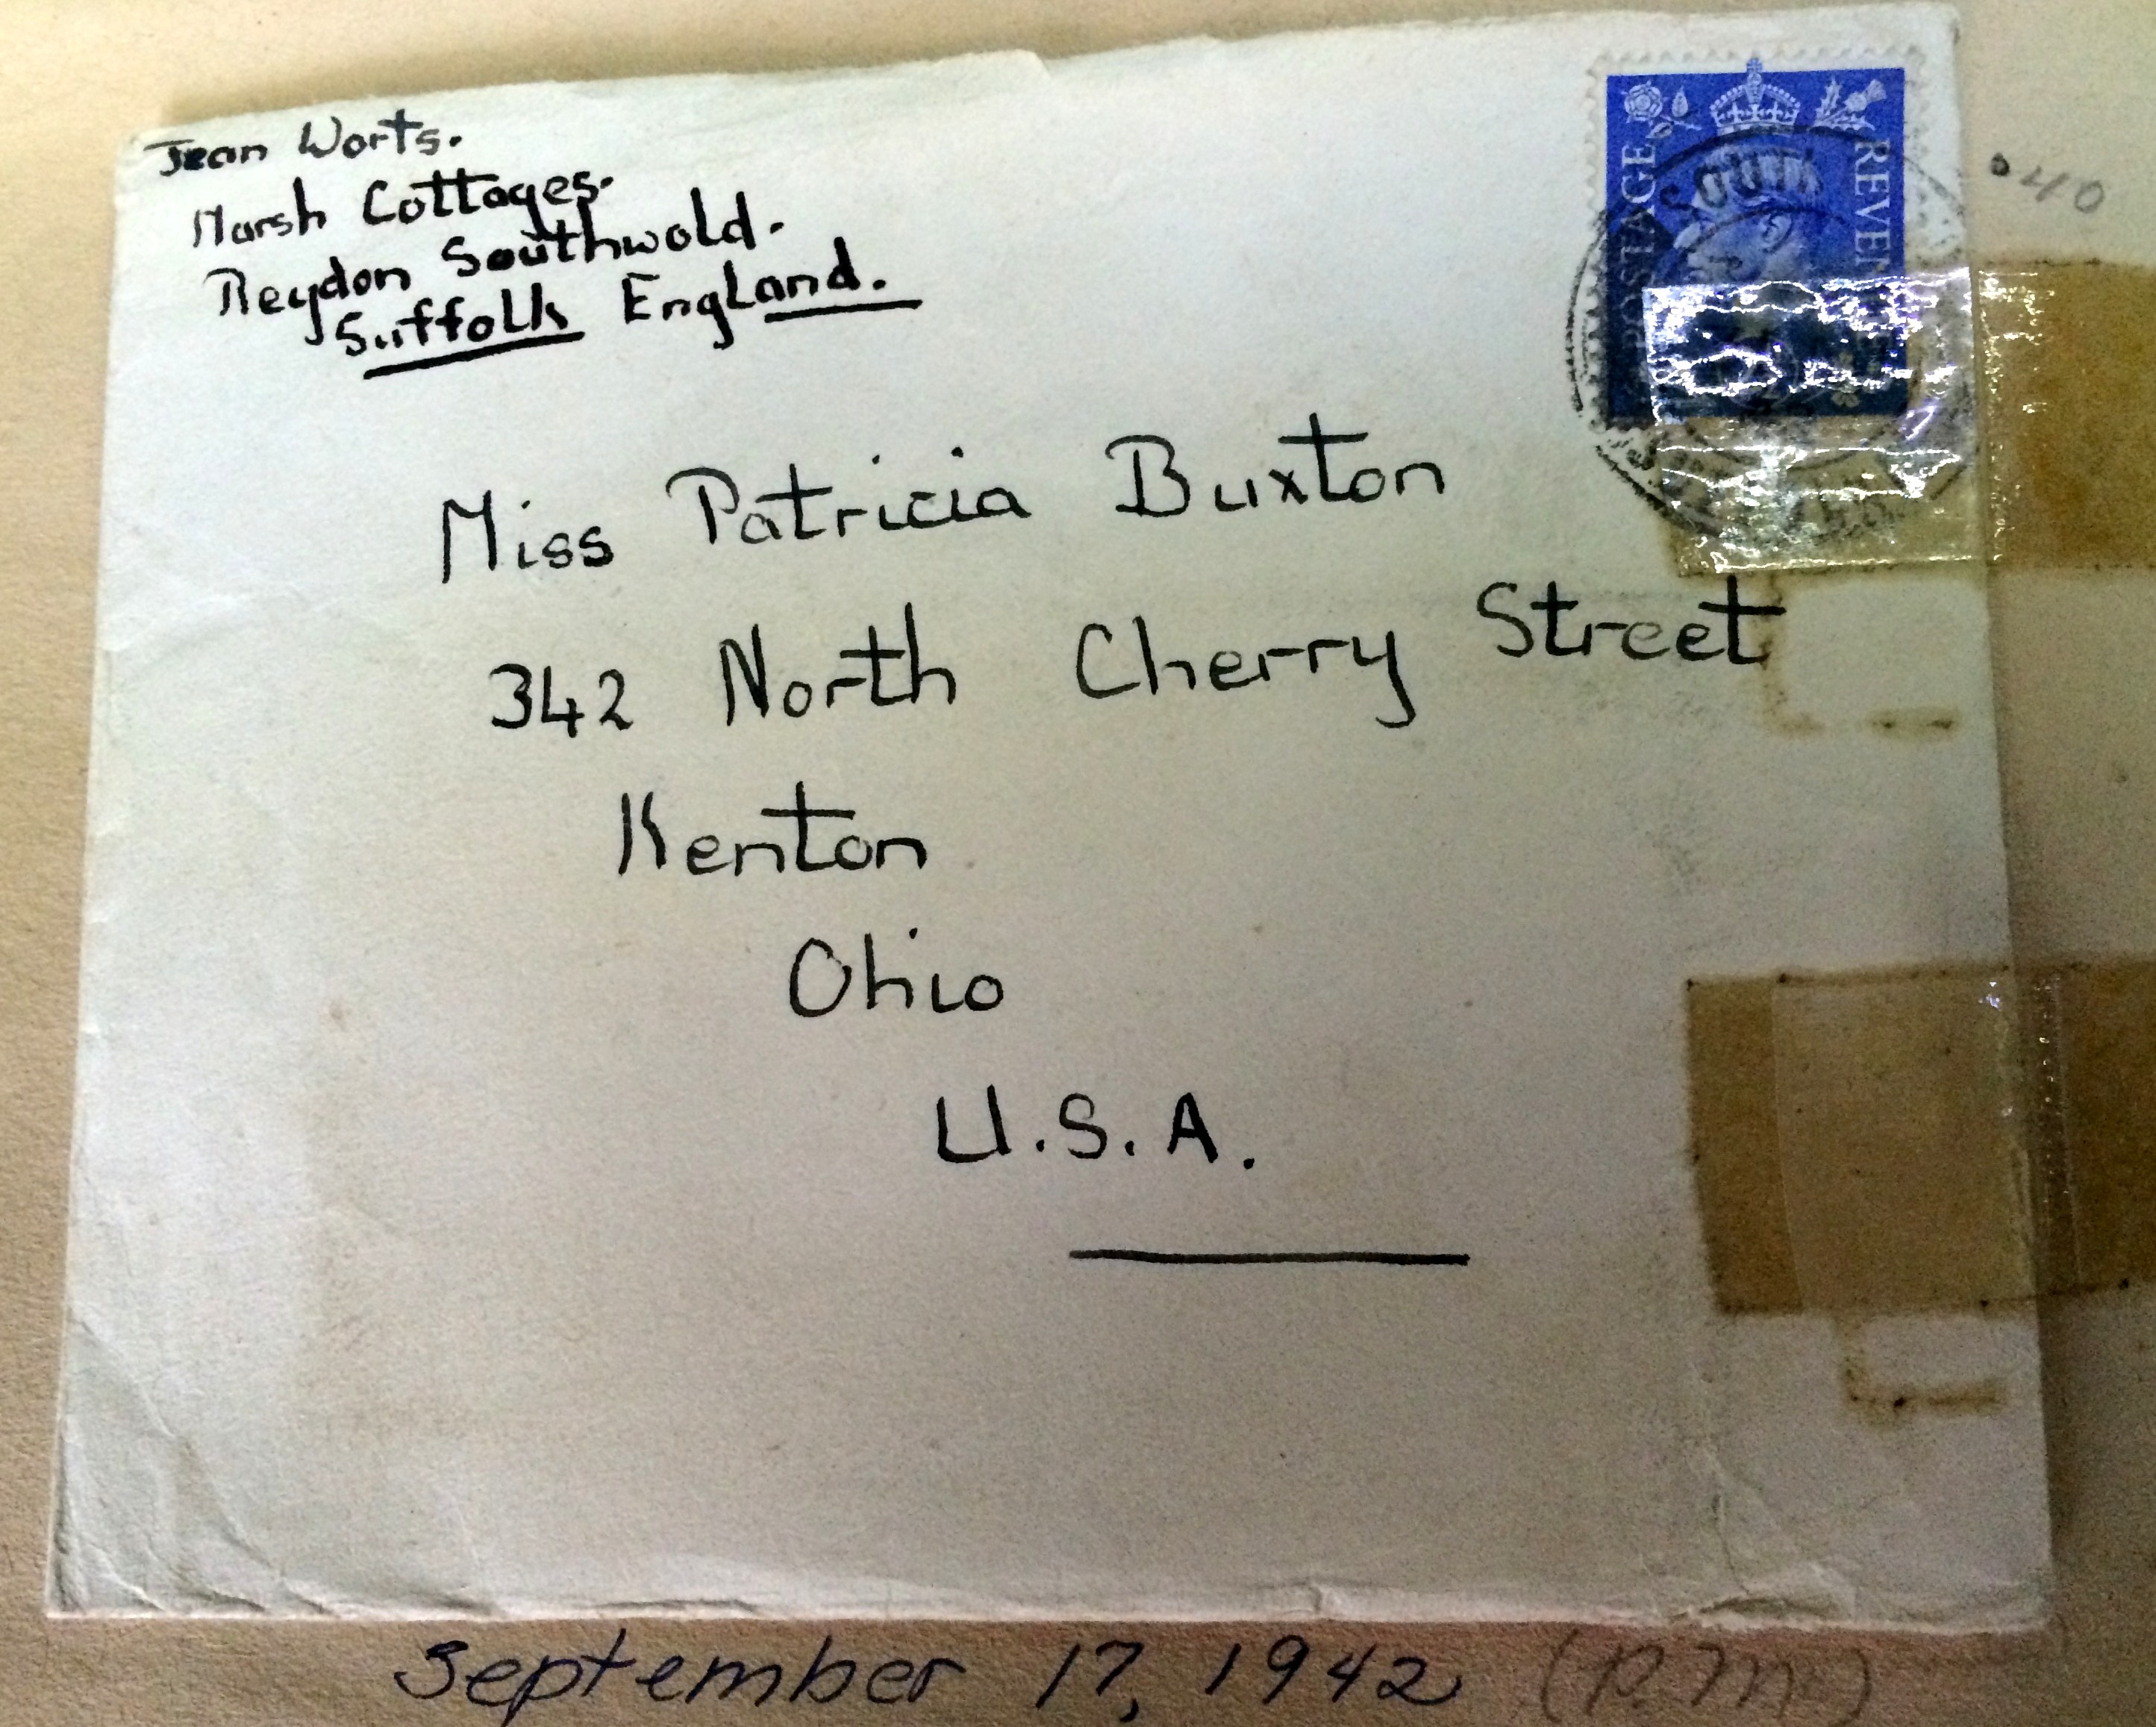 Jean Worts.
Marsh Cottages.
Reydon Southwold.
Suffolk England.
POSTAGE
REVEN
SOUTH
.40
Miss Patricia Buxton
342 North Cherry Street
Kenton
Ohio
U.S.A.
September 17, 1942 (P.M.)